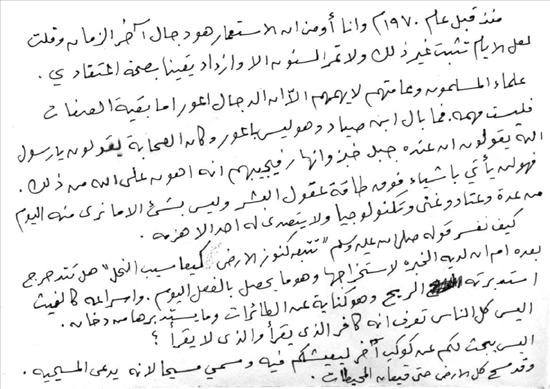 منذ قبل عام ١٩٧٠م وانا أومن ان الاستعمار هو دجال آخر الزمان وقلت
لعل الايام تثبت غير ذلك ولا تمر السنون الا وازداد يقينا بصحة اعتقادي.
علماء المسلمون وعامتهم لا يهمهم الا ان الدجال اعور اما بقية الصفات
فليست مهمه. فما بال ابن صياد وهو ليس باعور وكان الصحابة يقولون يارسول
الله يقولون ان عنده جبل خبز وانهار فيجيبهم انه اهون على الله من ذلك.
فهو لن يأتي باشياء فوق طاقة عقول البشر وليس بشئ الا ما نرى منه اليوم
من عدة وعتاد وغنى وتكنولوجيا ولا يتصدى له احد الا هزمه.
كيف نفسر قوله صلى الله عليه وسلم "تتبعه كنوز الارض كيعاسيب النحل" هل تتدحرج
بعده ام ان لديه الخبره لاستخراجها وهو ما يحصل بالفعل اليوم. واسراعه كالغيث
استدبرته الريح وهو كناية عن الطائرات وما يستدبرها من دخان.
اليس كل الناس تعرف انه كافر الذي يقرأ والذي لا يقرأ؟
اليس يبحث لكم عن كوكب آخر ليعيشكم فيه وسمي مسيحا لانه يدعى المسيحيه.
وقد مسح كل الارض حتى قيعان المحيطات.